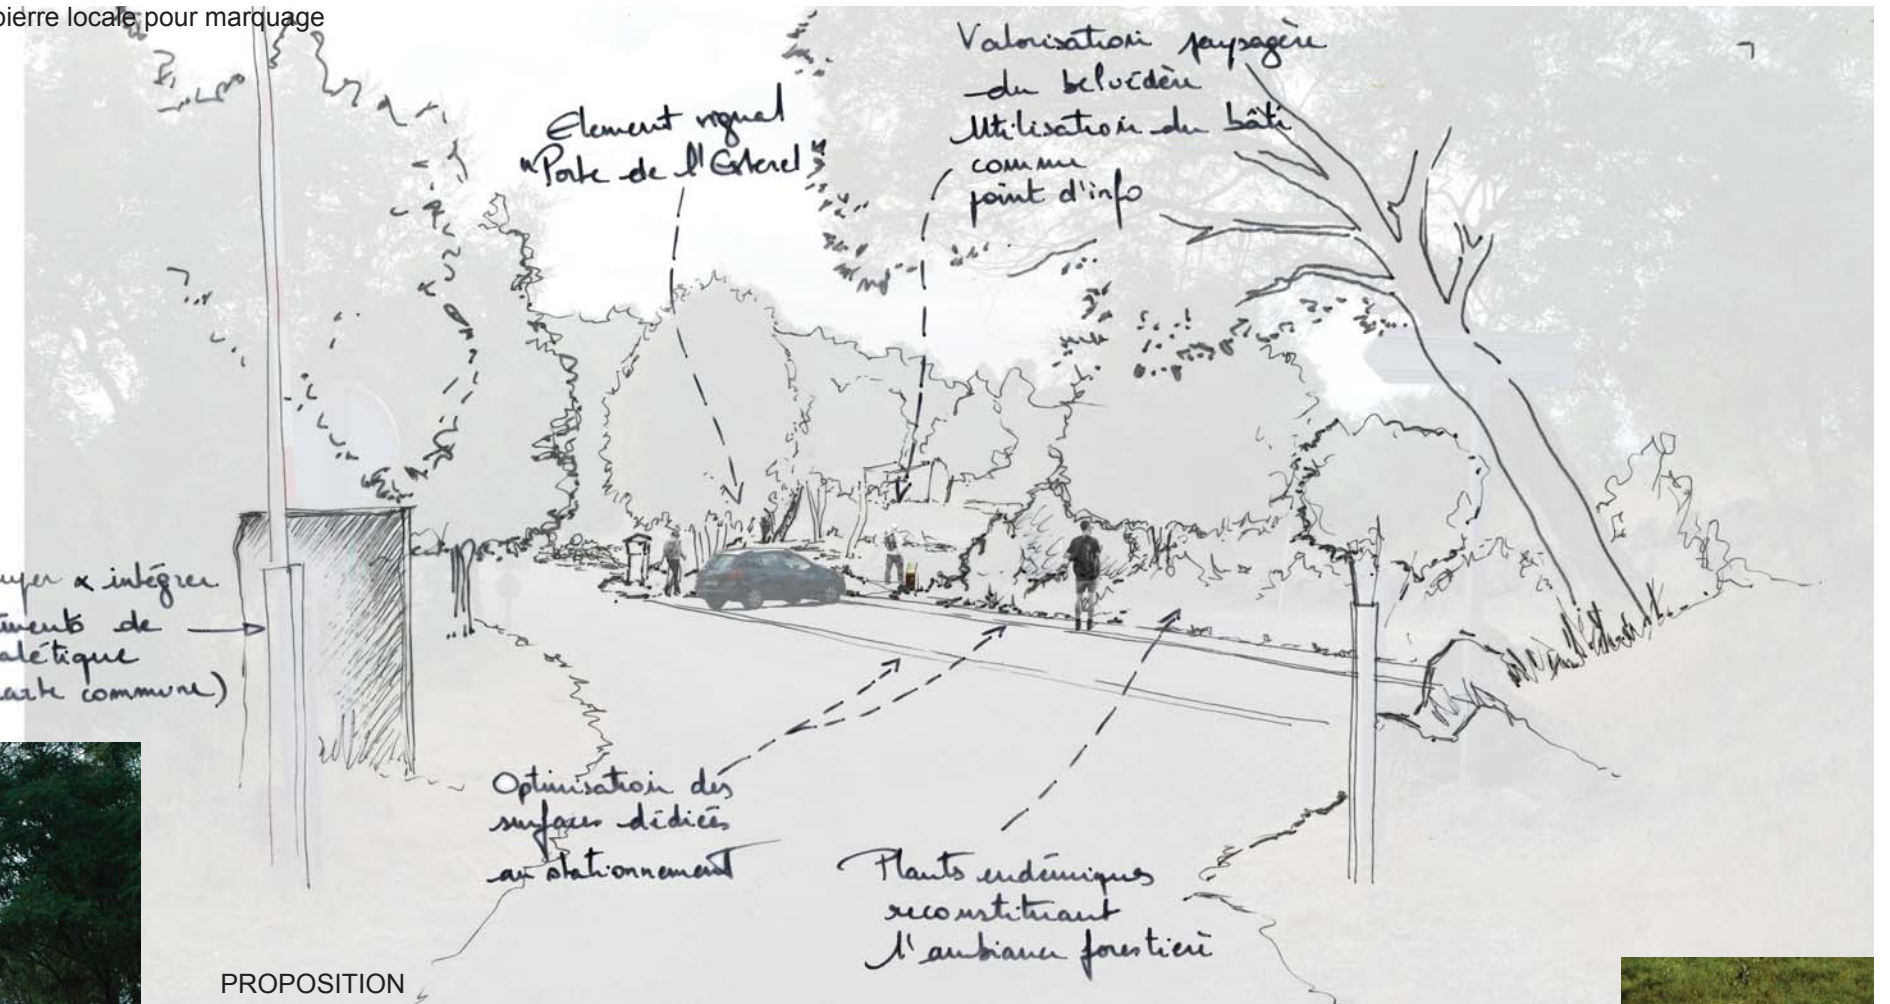 pierre locale pour marquage
Element signal
"Porte de l'Esterel"
Valorisation paysagère
du belvédère
Utilisation du bâti
comme
point d'info
& intégrer
de
(carte commune)
Optimisation des
surfaces dédiées
au stationnement
Plants endémiques
reconstituant
l'ambiance forestière
PROPOSITION